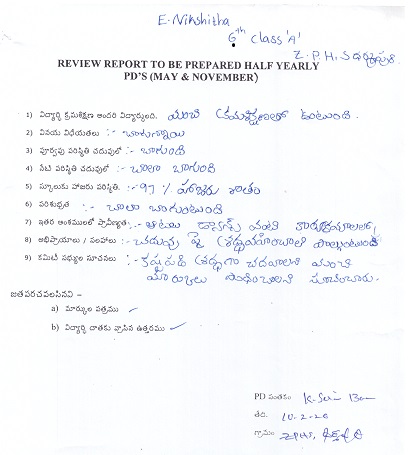 E. Nikshitha
6th class 'A'
Z.P.H.S
REVIEW REPORT TO BE PREPARED HALF YEARLY
PD'S (MAY & NOVEMBER)
1) విద్యార్థి క్రమశిక్షణ అందరి విద్యార్థులది. మంచి క్రమశిక్షణతో ఉంటుంది.
2) వినయ విధేయతలు :- బాగున్నాయి
3) పూర్వపు పరిస్థితి చదువులో :- బాగుంది
4) నేటి పరిస్థితి చదువులో :- చాలా బాగుంది
5) స్కూలుకు హాజరు పరిస్థితి. :- 97% హాజరు శాతం
6) పరిశుభ్రత :- చాలా బాగుంటుంది
7) ఇతర అంశములలో ప్రావీణ్యత :- ఆటలు డాన్స్ వంటి కార్యక్రమాలలో,
8) అభిప్రాయాలు / సలహాలు :- చదువు పై శ్రద్ధ పాల్గొంటుంది
9) కమిటీ సభ్యుల సూచనలు :- కష్టపడి శ్రద్ధగా చదవాలని మంచి
మార్కులు సూచించారు.
జతపరచవలసినవి –
a) మార్కుల పత్రము ✓
b) విద్యార్థి దాతకు వ్రాసిన ఉత్తరము ✓
PD సంతకం
తేది. 10-2-20
గ్రామం ZPHS,